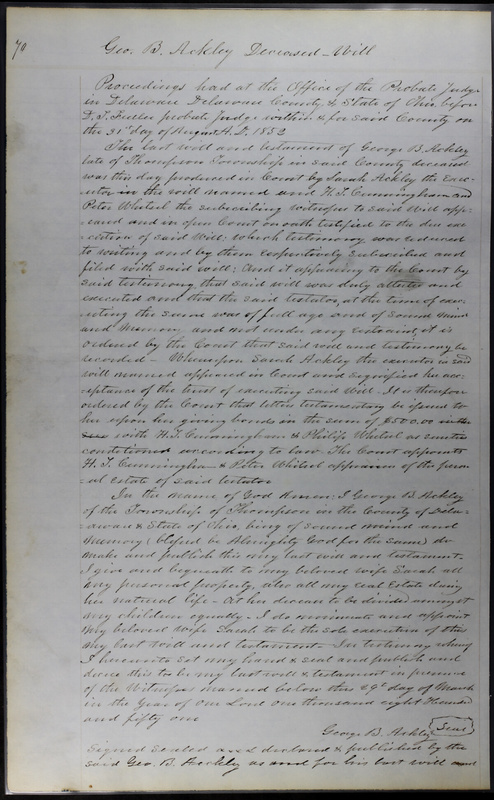 70
Geo. B. Ackley Deceased - Will
Proceedings had at the Office of the Probate Judge
in Delaware Delaware County & State of Ohio, before
D. T. Fuller probate Judge within & for said County on
the 31st day of August A.D. 1852
The last will and testament of George B. Ackley
late of Thompson Township in said County deceased
was this day produced in Court by Sarah Ackley the Exec-
-utor in the will named and H. T. Cunningham and
Peter Whetsel the subscribing witnesses to said Will app-
-eared and in open Court on oath testified to the due exe
-cution of said Will: which testimony was reduced
to writing and by them respectively subscribed and
filed with said will: And it appearing to the Court by
said testimony that said will was duly attested and
executed and that the said testator, at the time of exec-
-uting the same was of full age and of sound mind
and memory and not under any restraint, it is
ordered by the Court that said will and testimony be
recorded - Whereupon Sarah Ackley the executor in said
will named appeared in Court and signified her acc-
-eptance of the trust of executing said Will: It is therefore
ordered by the Court that letters testamentary be issued to
her upon her giving bonds in the sum of $500.00 in the
with H. T. Cunningham & Philip Whetsel as sureties
conditioned according to law. The Court appoints
H. T. Cunningham & Peter Whetsel appraisers of the person
-al estate of said testator
In the name of God Amen: I George B. Ackley
of the Township of Thompson in the County of Dela-
-aware & State of Ohio, being of sound mind and
memory (blessed be Almighty God for the same) do
make and publish this my last will and testament.
I give and bequeath to my beloved wife Sarah all
my personal property, also all my real Estate during
her natural life - At her decease to be divided amongst
my children equally - I do nominate and appoint
my beloved wife Sarah to be the sole executrix of this
my last will and testament - In testimony whereof
I hereunto set my hand & seal and publish and
decree this to be my last will & testament in presence
of the Witnesses named below this 29th day of March
in the Year of our Lord one thousand eight Hundred
and fifty one
George B. Ackley Seal
Signed sealed and declared & published by the
said Geo. B. Ackley as and for his last will and